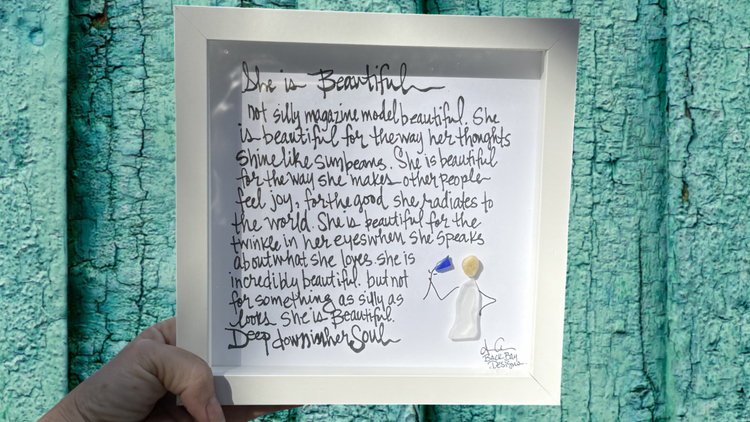 She is Beautiful
Not silly magazine model beautiful. She
is beautiful for the way her thoughts
shine like sunbeams. She is beautiful
for the way she makes other people
feel joy, for the good she radiates to
the world. She is beautiful for the
twinkle in her eyes when she speaks
about what she loves. she is
incredibly beautiful. but not
for something as silly as
looks. She is Beautiful.
Deep down in her Soul
Back Bay
Designs